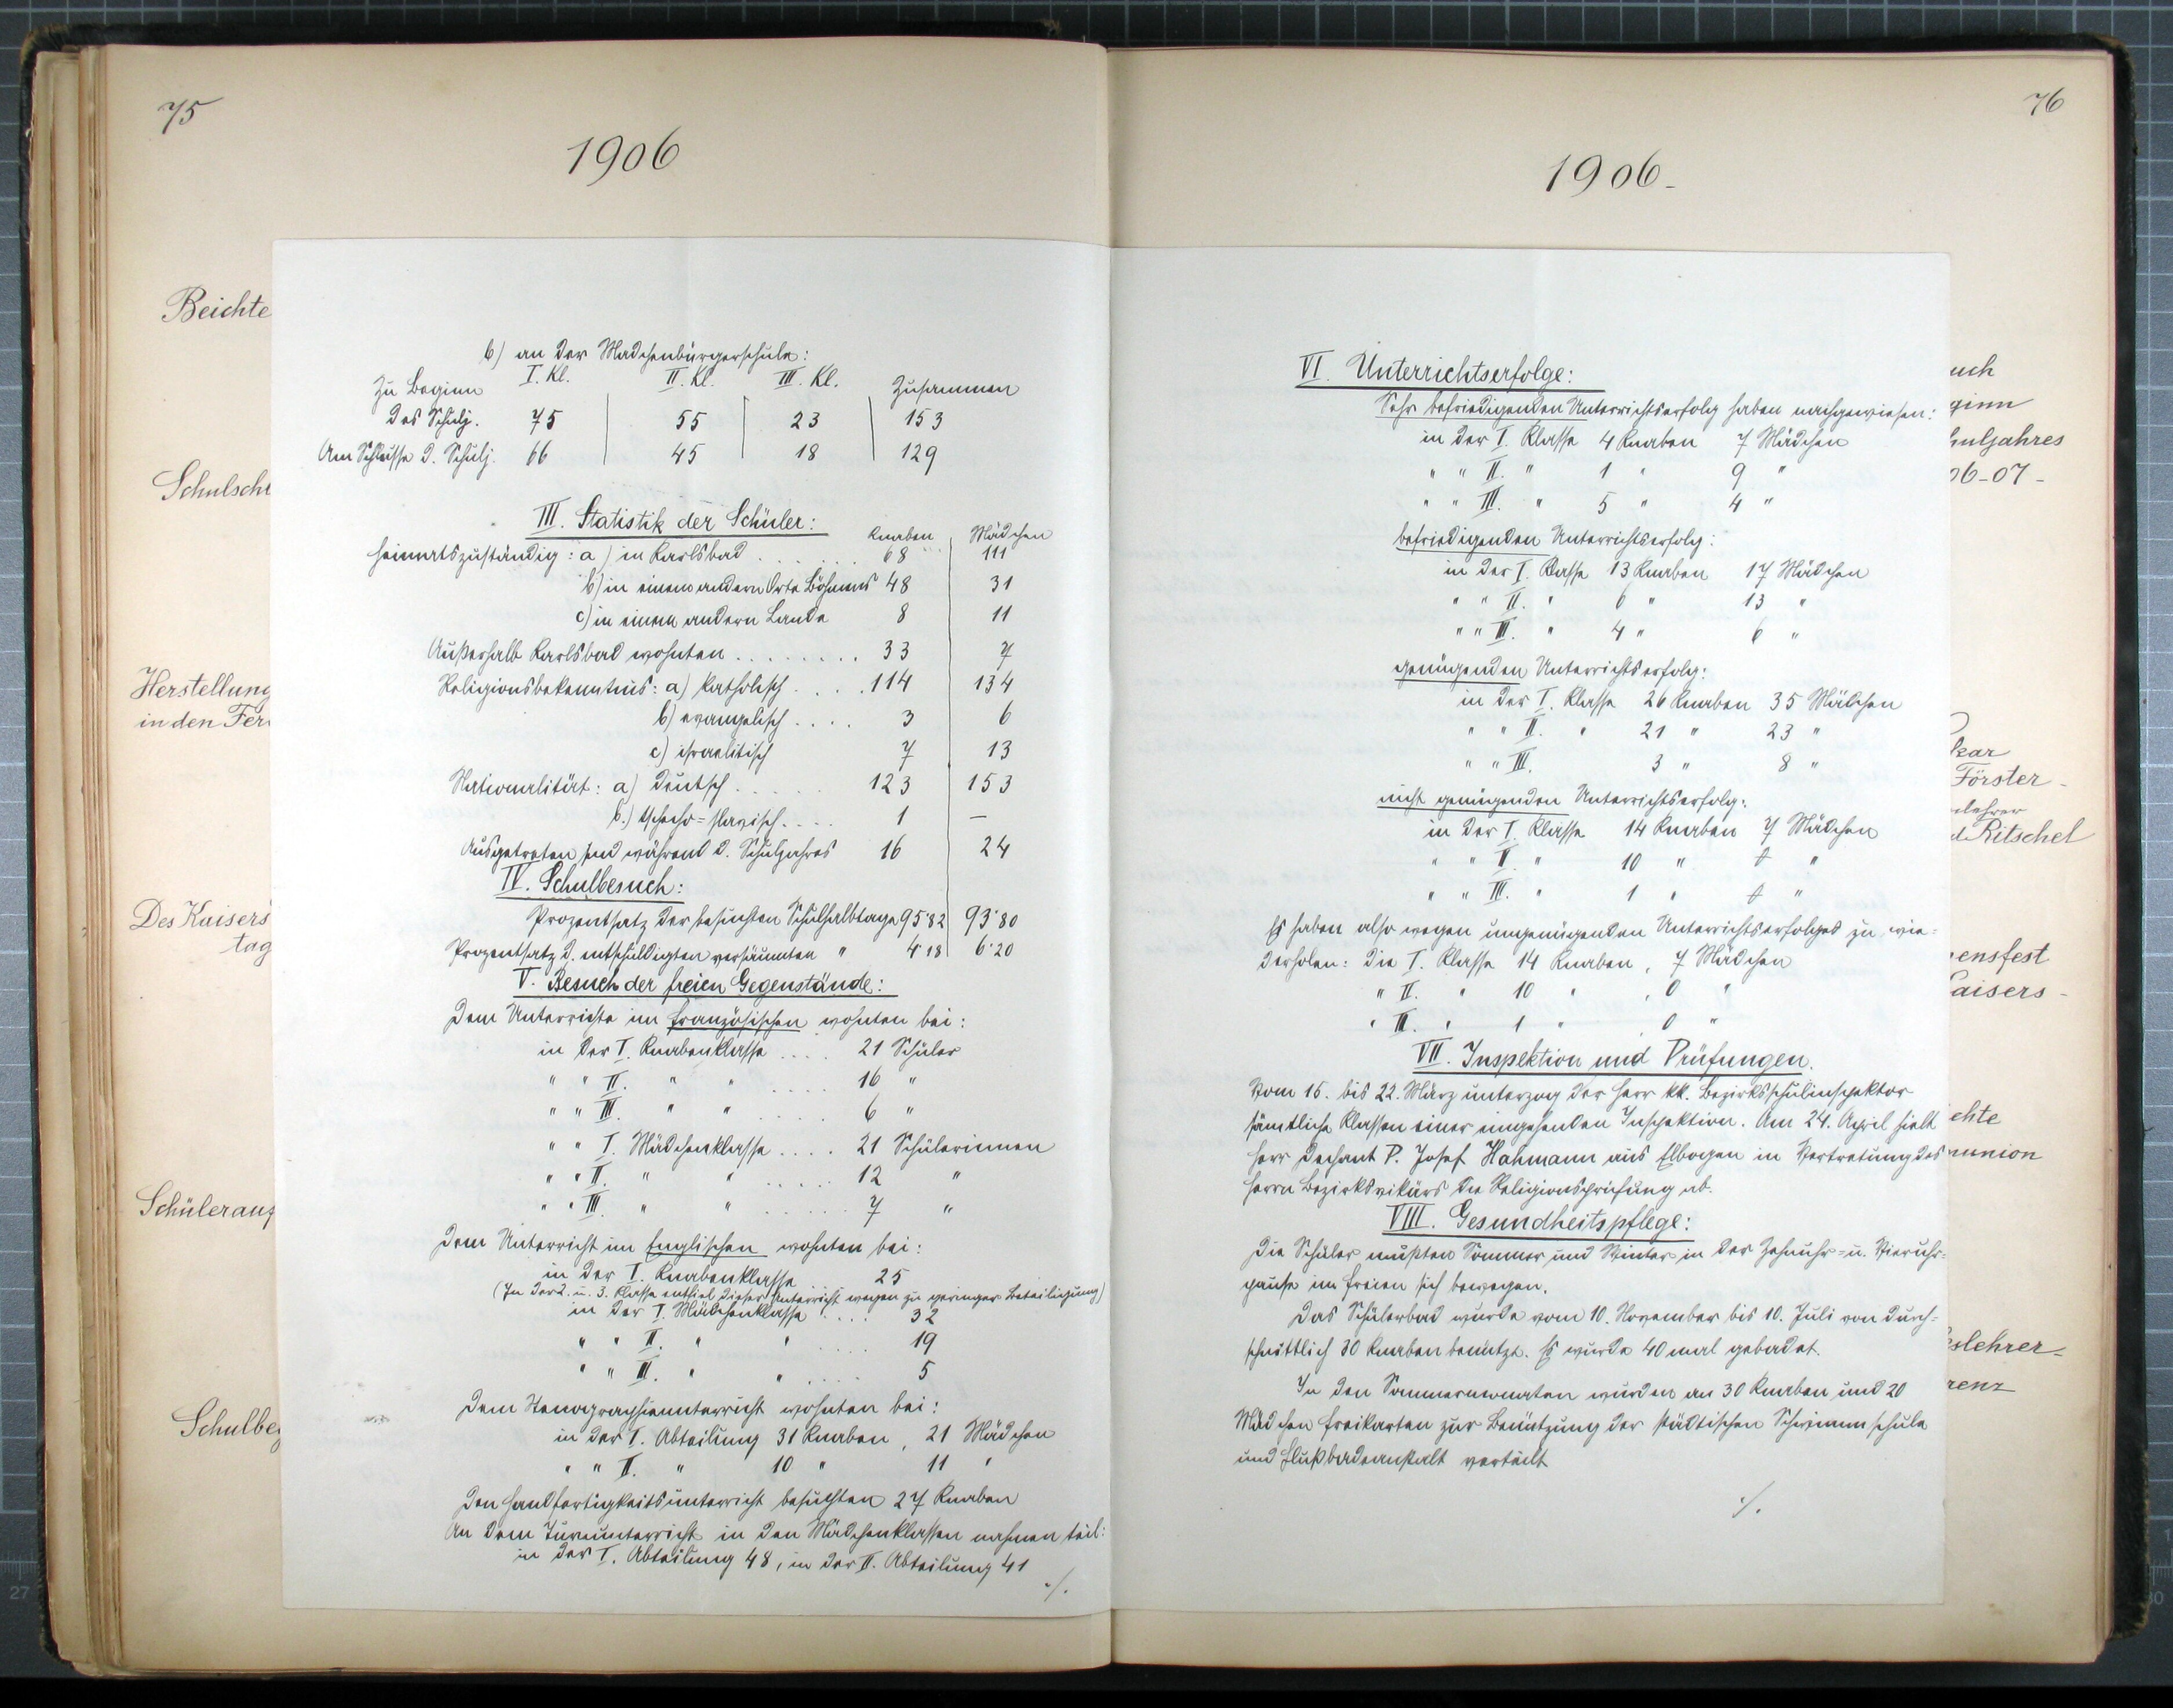 75
1906
Beichte
Schulsch
Herstellung
in den Fer
Des Kaisers
tag
Schüleraus
Schulbe
b) an der Mädchenbürgerschule:
I. Kl. II. Kl. III. Kl.
Zu Beginn Zusammen
des Schulj. 75 55 23 153
Am Schlusse d. Schulj. 66 45 18 129
III. Statistik der Schüler:
Knaben Mädchen
Heimatszuständig: a) in Karlsbad . . . . . . 68 111
b) in einem andern Orte Böhmens 48 31
c) in einem andern Lande 8 11
Außerhalb Karlsbad wohnten . . . . . . . . 33 7
Religionsbekenntnis: a) katholisch . . . . 114 134
b) evangelisch . . . . 3 6
c) israelitisch 7 13
Nationalität: a) deutsch . . . . . 123 153
b.) tschecho=slavisch . . . . 1 —
Ausgetreten sind während d. Schuljahres 16 24
IV. Schulbesuch:
Prozentsatz der besuchten Schulhalbtage 95·82 93·80
Prozentsatz d. entschuldigten versäumten " 4·18 6·20
V. Besuch der freien Gegenstände:
Dem Unterrichte im Französischen wohnten bei:
in der I. Knabenklasse . . . . 21 Schüler
" " II. " " . . . . 16 "
" " III. " " . . . . 6 "
" " I. Mädchenklasse . . . . 21 Schülerinnen
" " II. " " . . . . . 12 "
" " III. " " . . . . . . 7 "
Dem Unterricht im Englischen wohnten bei:
in der I. Knabenklasse 25
(In der 2. u. 3. Klasse entfiel dieser Unterricht wegen zu geringer Beteiligung)
in der I. Mädchenklasse . . . . 32
" " II. " " . . . . 19
" " III. " " . . . . 5
Dem Stenographieunterricht wohnten bei:
in der I. Abteilung 31 Knaben, 21 Mädchen
" " II. " 10 " 11 "
Den Handfertigkeitsunterricht besuchten 27 Knaben
An dem Turnunterricht in den Mädchenklassen nahmen teil:
in der I. Abteilung 48, in der II. Abteilung 41
./.
76
1906-
VI. Unterrichtserfolge:
Sehr befriedigenden Unterrichtserfolg haben nachgewiesen:
in der I. Klasse 4 Knaben 7 Mädchen
" " II. " 1 " 9 "
" " III. " 5 " 4 "
befriedigenden Unterrichtserfolg:
in der I. Klasse 13 Knaben 17 Mädchen
" " II. " 6 " 13 "
" " III. " 4 " 6 "
genügenden Unterrichtserfolg:
in der I. Klasse 26 Knaben 35 Mädchen
" " II. " 21 " 23 "
" " III. 3 " 8 "
nicht genügenden Unterrichtserfolg:
in der I. Klasse 14 Knaben 7 Mädchen
" " II. " 10 " 0 "
" " III. " 1 " 0 "
Es haben also wegen ungenügenden Unterrichtserfolges zu wie=
derholen: Die I. Klasse 14 Knaben, 7 Mädchen
" II. " 10 " , 0 "
" III. " 1 " 0 "
VII. Inspektion und Prüfungen.
Vom 15. bis 22. März unterzog der Herr kk. Bezirksschulinspektor
sämtliche Klassen einer eingehenden Inspektion. Am 24. April hielt
Herr Dechant P. Josef Hahmann aus Elbogen in Vertretung des
Herrn Bezirksvikärs die Religionsprüfung ab.
VIII. Gesundheitspflege:
Die Schüler mußten Sommer und Winter in der Zehnuhr= u. Vieruhr=
pause im Freien sich bewegen.
Das Schülerbad wurde vom 10. November bis 10. Juli von durch=
schnittlich 30 Knaben benützt. Es wurde 40 mal gebadet.
In den Sommermonaten wurden an 30 Knaben und 20
Mädchen Freikarten zur Benützung der städtischen Schwimmschule
und Flußbadeanstalt verteilt
./.
uch
ginn
huljahres
06-07-
kar
Förster-
lehrer
d. Ritschel
ensfest
aisers-
ichte
munion
slehrer=
renz
27